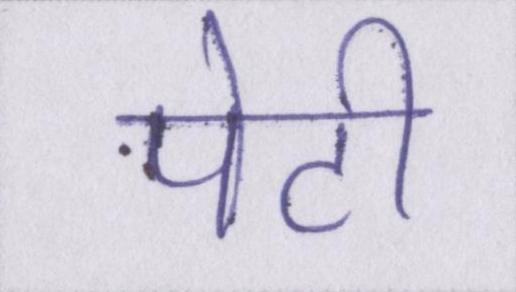 पेटी